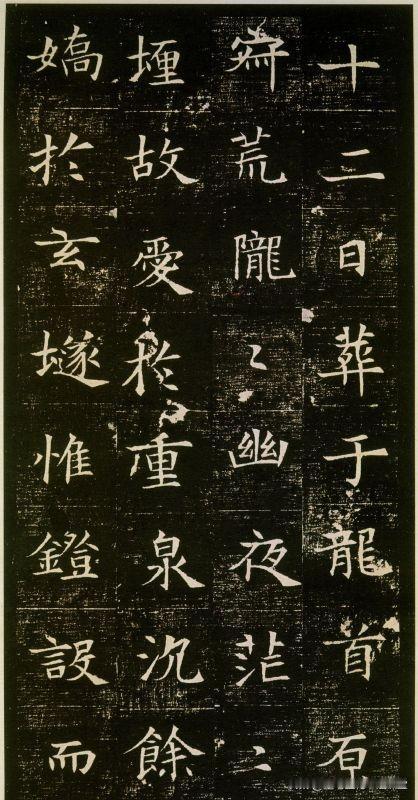 十二日葬于龍首原
寂荒隴〻幽夜茫〻
堙故愛於重泉沉餘
嬌於玄隧惟鐙設而